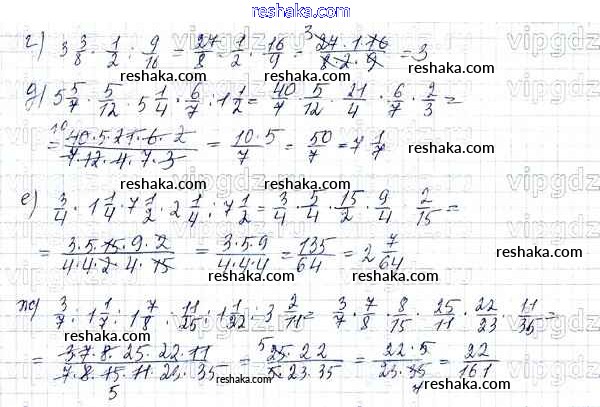 reshaka.com
г) 3 3/8 · 1/2 : 9/16 = 27/8 · 1/2 · 16/9 = 27·1·16/8·2·9 = 3
reshaka.com reshaka.com
д) 5 5/7 · 5/12 · 5 1/4 · 6/7 : 1 1/2 = 40/7 · 5/12 · 21/4 · 6/7 · 2/3 =
= 40·5·21·6·2/7·12·4·7·3 = 10·5/7 = 50/7 = 7 1/7
reshaka.com reshaka.com
е) 3/4 · 1 1/4 · 7 1/2 · 2 1/4 : 7 1/2 = 3/4 · 5/4 · 15/2 · 9/4 · 2/15 =
reshaka.com
= 3·5·15·9·2/4·4·2·4·15 = 3·5·9/4·4·4 = 135/64 = 2 7/64
reshaka.com reshaka.com
ж) 3/7 : 1 1/7 : 1 7/8 : 11/25 : 1 1/22 : 3 2/11 = 3/7 · 7/8 · 8/15 · 25/11 · 22/23 · 11/35 =
reshaka.com reshaka.com
= 3·7·8·25·22·11/7·8·15·11·23·35 = 25·22/5·23·35 = 22·5/23·35 = 22/161
reshaka.com reshaka.com